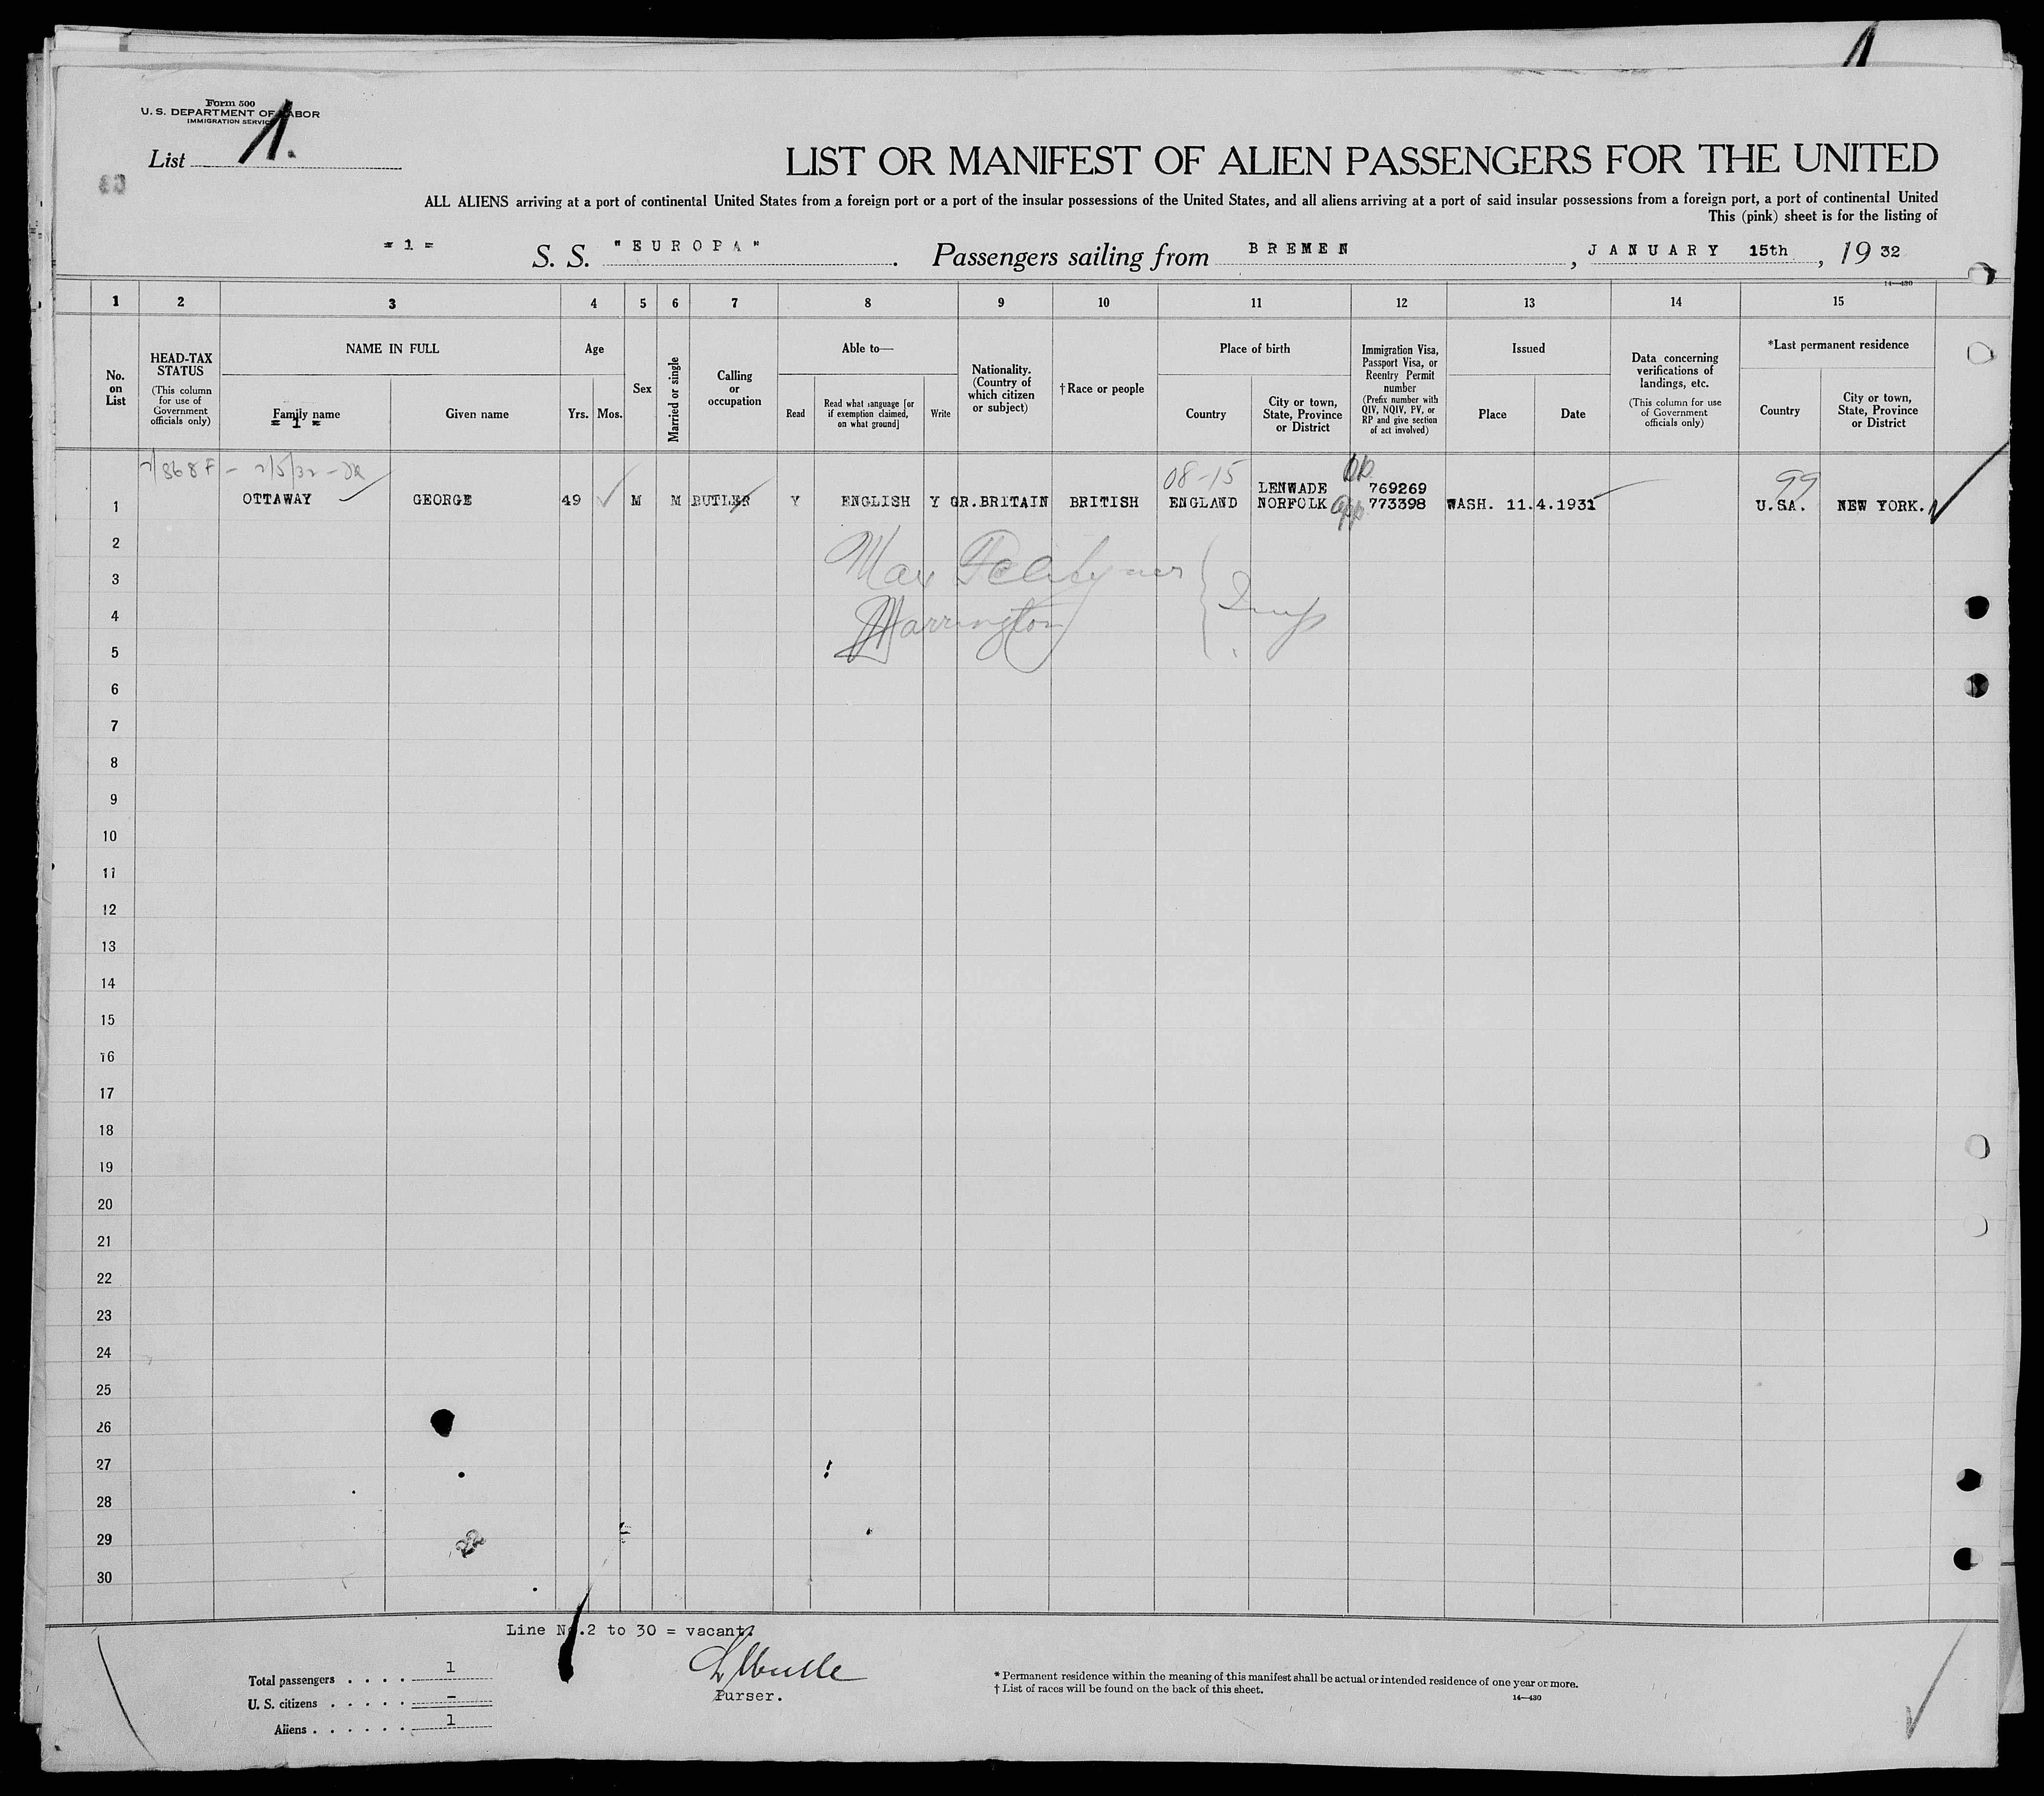 Form 500
U. S. DEPARTMENT OF LABOR
IMMIGRATION SERVICE
List 1.
LIST OR MANIFEST OF ALIEN PASSENGERS FOR THE UNITED
ALL ALIENS arriving at a port of continental United States from a foreign port or a port of the insular possessions of the United States, and all aliens arriving at a port of said insular possessions from a foreign port, a port of continental United
This (pink) sheet is for the listing of
= 1 = S. S. "EUROPA". Passengers sailing from BREMEN, JANUARY 15th, 1932
14—430
1 2 3 4 5 6 7 8 9 10 11 12 13 14 15
No. on List
HEAD-TAX STATUS
(This column for use of Government officials only)
NAME IN FULL
Family name
= 1 =
Given name
Age
Yrs. Mos.
Sex
Married or single
Calling or occupation
Able to—
Read
Read what language [or if exemption claimed, on what ground]
Write
Nationality. (Country of which citizen or subject)
† Race or people
Place of birth
Country
City or town, State, Province or District
Immigration Visa, Passport Visa, or Reentry Permit number
(Prefix number with QIV, NQIV, PV, or RP and give section of act involved)
Issued
Place
Date
Data concerning verifications of landings, etc.
(This column for use of Government officials only)
*Last permanent residence
Country
City or town, State, Province or District
08-15 99
1 OTTAWAY GEORGE 49 M M BUTLER Y ENGLISH Y GR.BRITAIN BRITISH ENGLAND LENWADE NORFOLK 769269 773398 WASH. 11.4.1931 U.S.A. NEW YORK.
2
Max
3
4
Harrington
5
6
7
8
9
10
11
12
13
14
15
16
17
18
19
20
21
22
23
24
25
26
27
28
29
30
Line No.2 to 30 = vacant.
Purser.
Total passengers . . . . 1
U. S. citizens . . . . . –
Aliens . . . . . . 1
* Permanent residence within the meaning of this manifest shall be actual or intended residence of one year or more.
† List of races will be found on the back of this sheet.
14—430